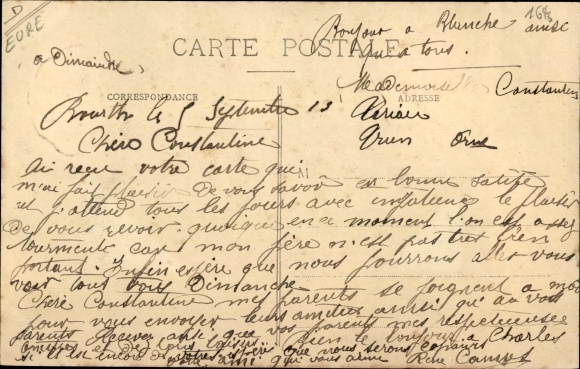 D
EURE
168
Bonjour a Blanche ainsi
qu'a tous.
CARTE POSTALE
a Dimanche
CORRESPONDANCE
ADRESSE
Mademoiselle Constantine
Bourth le 5 Septembre 13
Orne
Chère Constantine
Ai reçu votre carte qui
m'ai fait plaisir de vous savoir en bonne santé
et j'attend tous les jours avec impatience le plaisir
de vous revoir quoique en ce moment l'on est assez
tourmenté car mon père n'est pas très bien
portant. Enfin espère que nous pourrons aller vous
voir tous Dimanche
Chère Constantine mes parents se joignent a moi
pour vous envoyer leurs amitiés ainsi qu'a vos
parents Recevez ainsi que vos parents mes respectueuses
amitiés et de tous bien le bonjour a Charles
si il est encore que nous serons
ami qui vous aime René